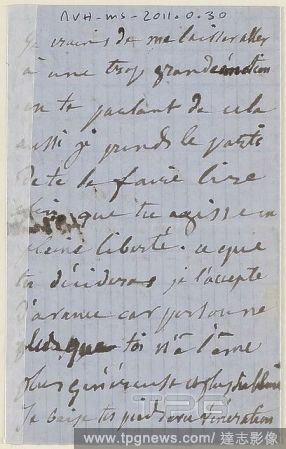 MVH-ms-2011.0.30
Je crains de me laisser aller
à une trop grande émotion
en te parlant de cela
aussi je prends le parti
de te le faire lire
que tu agisse en
pleine liberté. ce que
tu décideras je l'accepte
d'avance car personne
plus que toi n'a l'âme
plus généreuse et plus
Je baise tes pieds avec vénération
TPG
www.tpgnews.com/達志影像